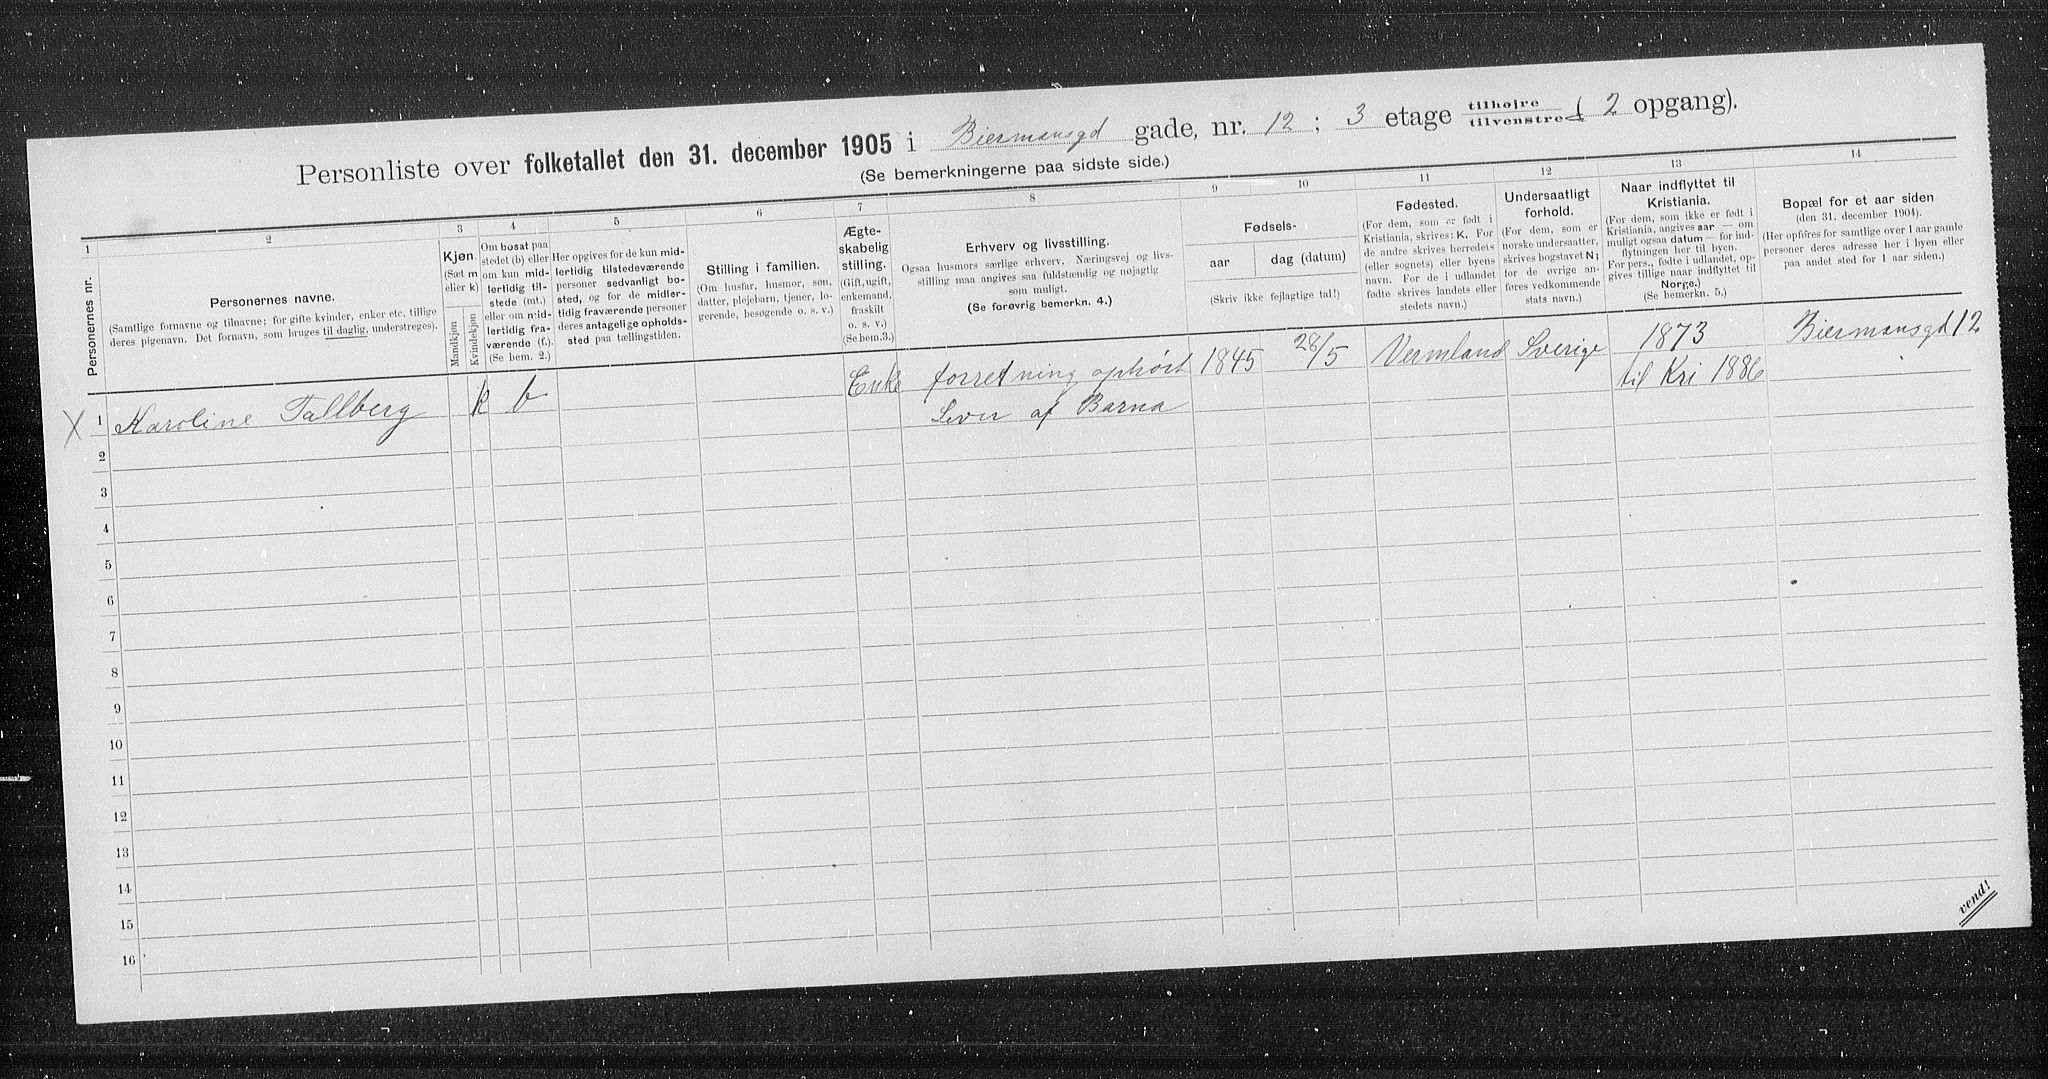 Personliste over folketallet den 31. december 1905 i Biermansgd gade, nr. 12 ; 3 etage tilhøjre / tilvenstre ( 2 opgang).
(Se bemerkningerne paa sidste side.)
1 2 3 4 5 6 7 8 9 10 11 12 13 14
Personernes nr.
Personernes navne.
(Samtlige fornavne og tilnavne; for gifte kvinder, enker etc. tillige
deres pigenavn. Det fornavn, som bruges til daglig, understreges).
Kjøn.
(Sæt m
eller k)
Mandkjøn
Kvindekjøn
Om bosat paa
stedet (b) eller
om kun mid-
lertidig til-
stede (mt.)
eller om mid-
lertidig fra-
værende (f.).
(Se bem. 2.)
Her opgives for de kun mid-
lertidig tilstedeværende
personer sedvanligt bo-
sted, og for de midler-
tidig fraværende personer
deres antagelige opholds-
sted paa tællingstiden.
Stilling i familien.
(Om husfar, husmor, søn,
datter, plejebarn, tjener, lo-
gerende, besøgende o. s. v.)
Ægte-
skabelig
stilling.
(Gift, ugift,
enkemand,
fraskilt
o. s. v.)
(Se bem.3.)
Erhverv og livsstilling.
Ogsaa husmors særlige erhverv. Næringsvej og livs-
stilling maa angives saa fuldstændig og nøjagtig
som muligt.
(Se forøvrig bemerkn. 4.)
Fødsels-
aar
dag (datum)
(Skriv ikke fejlagtige tal!)
Fødested.
(For dem, som er født i
Kristiania, skrives: K. For
de andre skrives herredets
(eller sognets) eller byens
navn. For de i udlandet
fødte skrives landets eller
stedets navn.)
Undersaatligt
forhold.
(For dem, som er
norske undersaatter,
skrives bogstavet N;
for de øvrige an-
føres vedkommende
stats navn.)
Naar indflyttet til
Kristiania.
(For dem, som ikke er født i
Kristiania, angives aar — om
muligt ogsaa datum — for ind-
flytningen her til byen.
For pers., fødte i udlandet, op-
gives tillige naar indflyttet til
Norge.)
(Se bemerkn. 5.)
Bopæl for et aar siden
(den 31. december 1904).
(Her opføres for samtlige over 1 aar gamle
personer deres adresse her i byen eller
paa andet sted for 1 aar siden.)
X 1 Karoline Tallberg k b Enke forretning ophørt 1845 28/5 Vermland Sverige 1873 Biermansgd 12
Lever af Barna til Kri 1886
2
3
4
5
6
7
8
9
10
11
12
13
14
15
16
vend!